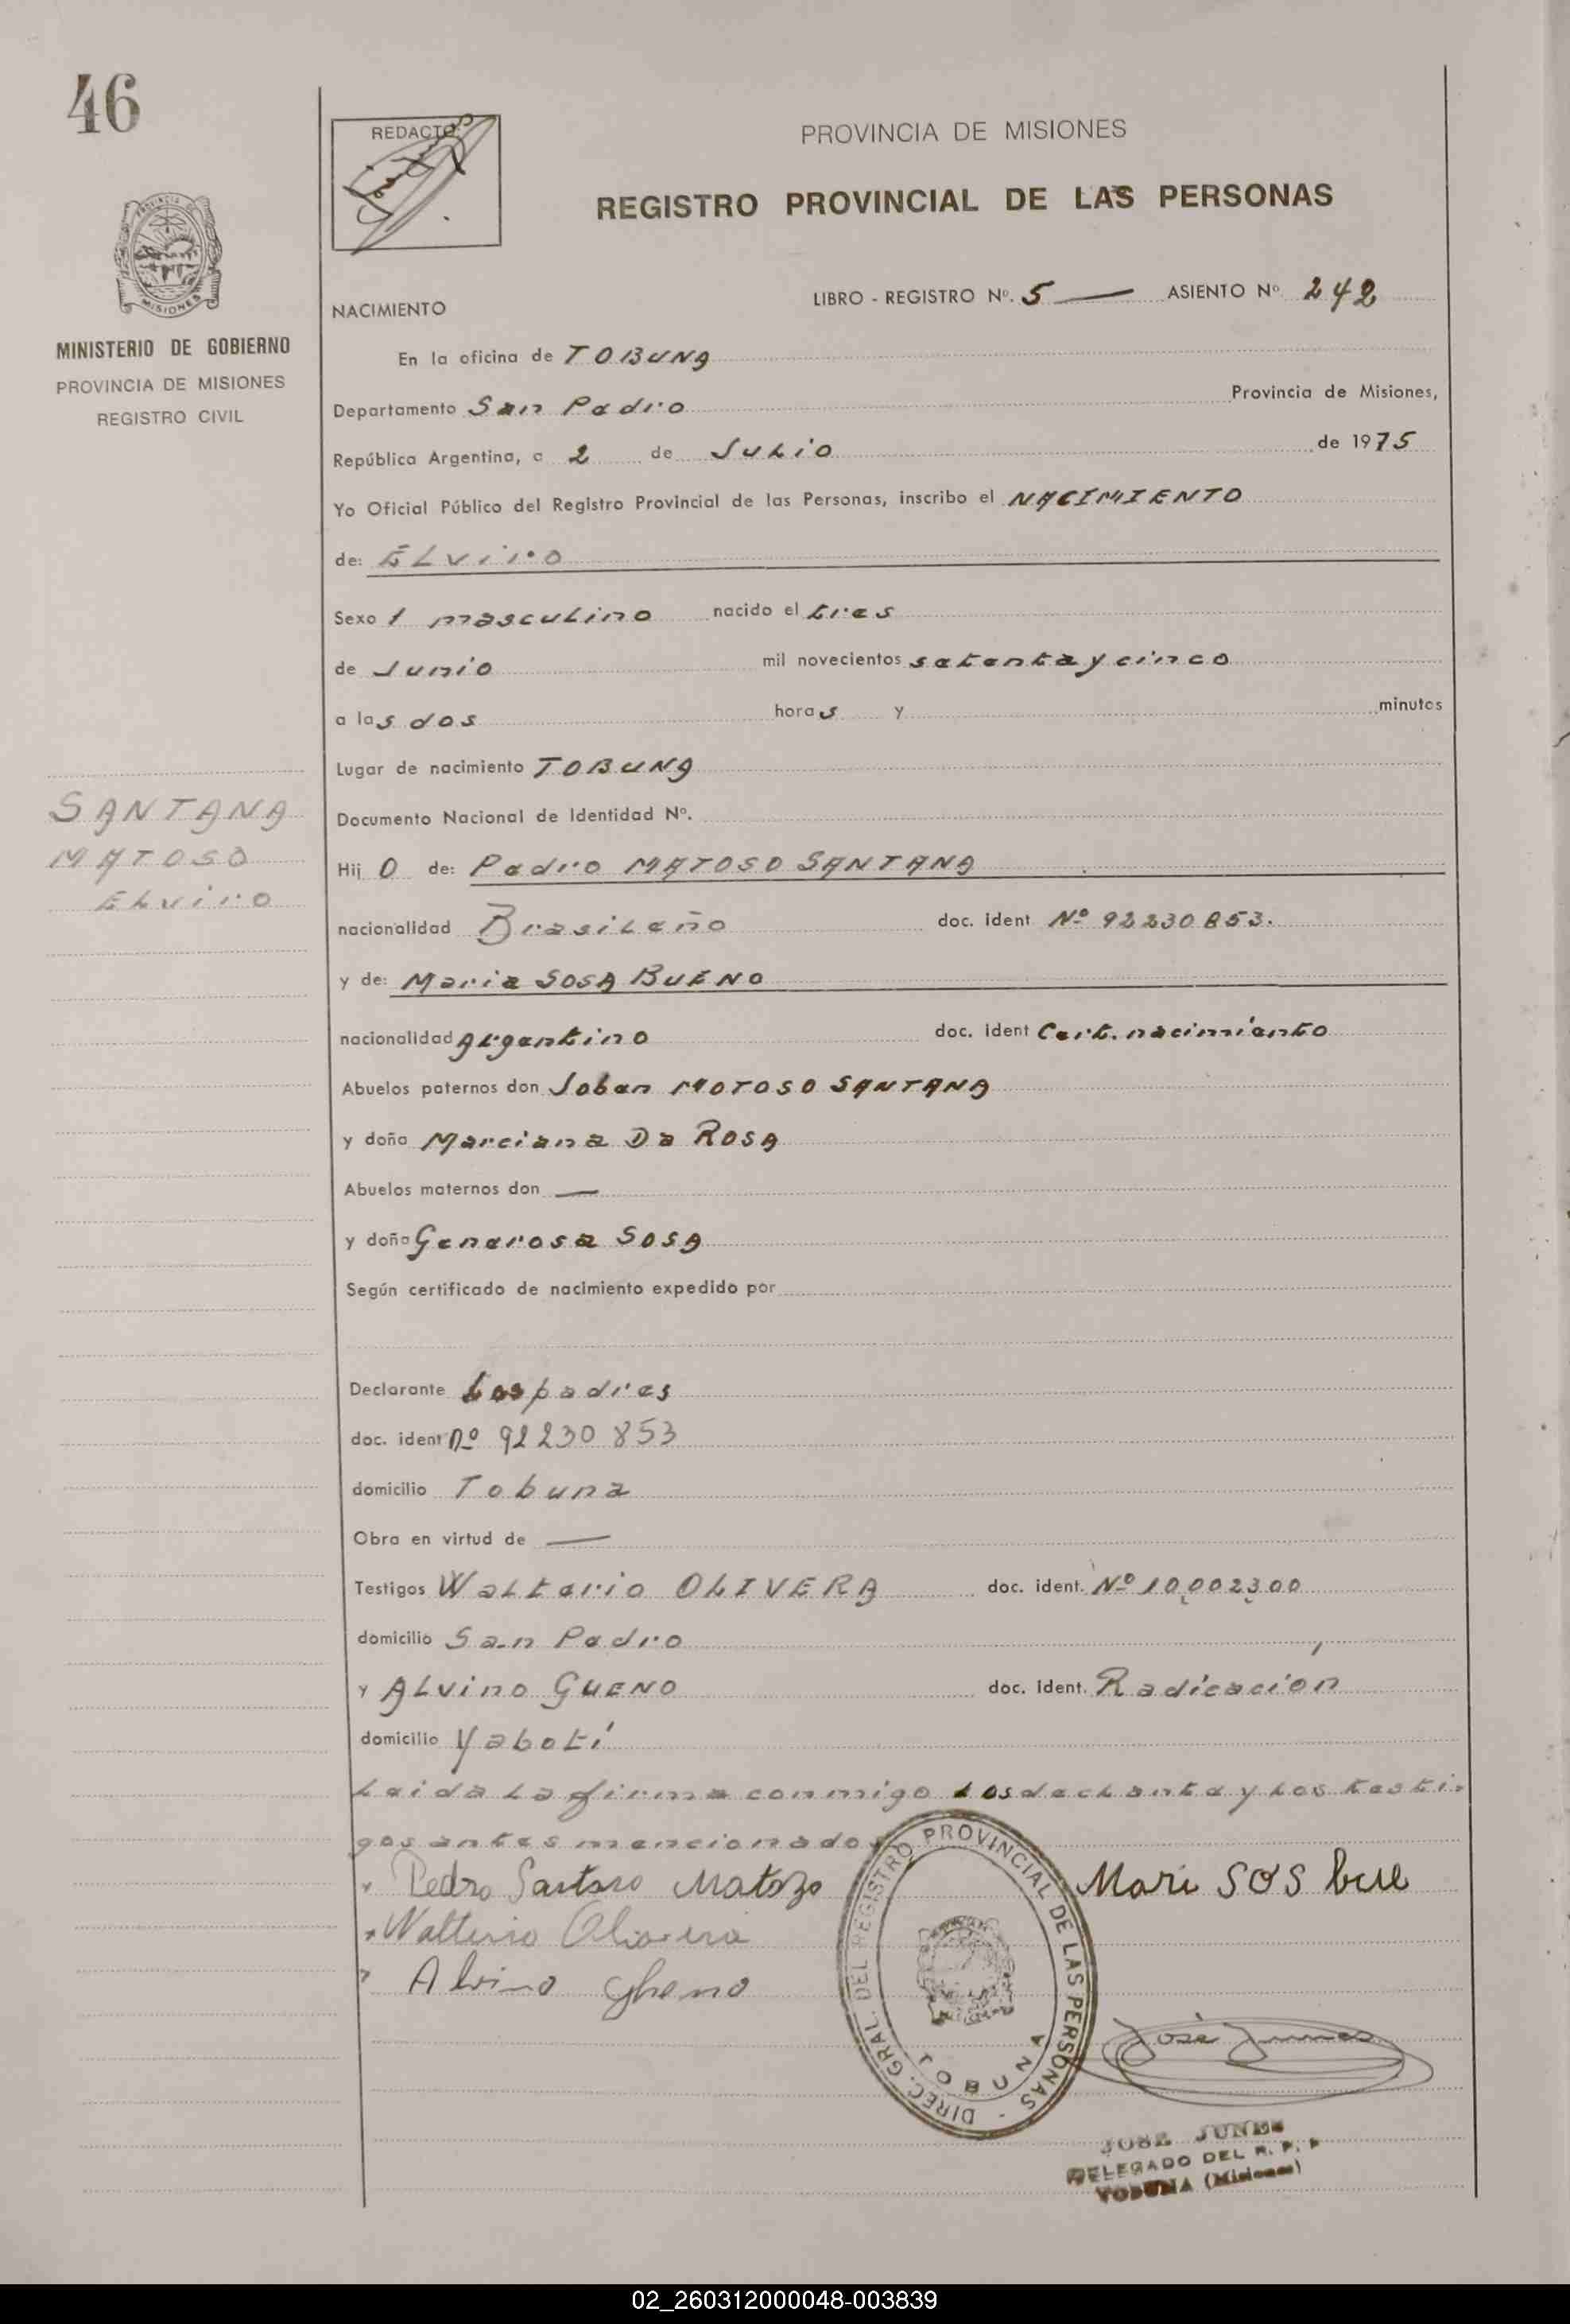 46
REDACTO
PROVINCIA DE MISIONES
REGISTRO PROVINCIAL DE LAS PERSONAS
MISIONES
MINISTERIO DE GOBIERNO
PROVINCIA DE MISIONES
REGISTRO CIVIL
NACIMIENTO
LIBRO - REGISTRO Nº. 5 — ASIENTO Nº 242
En la oficina de TOBUNA
Departamento San Pedro Provincia de Misiones,
República Argentina, a 2 de Julio de 1975
Yo Oficial Público del Registro Provincial de las Personas, inscribo el NACIMIENTO
de: ELviro
Sexo 1 masculino nacido el tres
de Junio mil novecientos setenta y cinco
a las dos horas y minutos
Lugar de nacimiento TOBUNA
Documento Nacional de Identidad Nº.
SANTANA
MATOSO
ELviro
Hij O de: Pedro MATOSO SANTANA
nacionalidad Brasileño doc. ident Nº 92230853.
y de: Maria SOSA BUENO
nacionalidad Argentino doc. ident Cert. nacimiento
Abuelos paternos don Joban MOTOSO SANTANA
y doña Marciana Da ROSA
Abuelos maternos don —
y doña Generosa SOSA
Según certificado de nacimiento expedido por
Declarante Los padres
doc. ident nº 92230853
domicilio Tobuna
Obra en virtud de —
Testigos Walterio OLIVERA doc. ident. Nº 10,002,300
domicilio San Pedro
y ALvino GUENO doc. ident. Radicación
domicilio Yabotí
Leida La firma conmigo Los declante y Los testi-
gos antes mencionados
Pedro Santano Matozo Mari SOS bue
Walterio Olivera
Alvino Gheno
DIREC. GRAL. DEL REGISTRO PROVINCIAL DE LAS PERSONAS -
TOBUNA
José Junes
JOSE JUNES
DELEGADO DEL R. P. P
TOBUNA (Misiones)
02_260312000048-003839